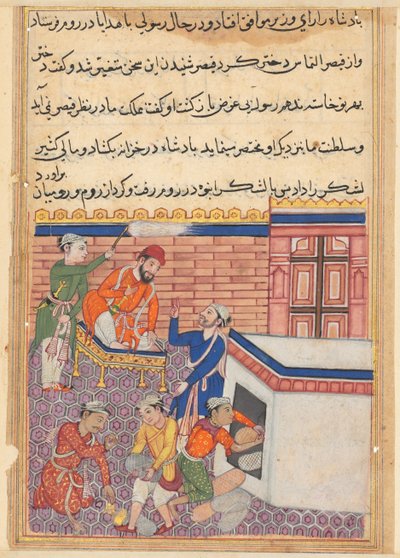 بادشاه را رای وزیر موافق افتاد و در حال رسولی با هدایا در روم فرستاد
و از قیصر التماس دختر کرد قیصر شنیدن این سخن متغیر شد و گفت دختر
بهر نوخاسته ندهم رسول بی غرض بازگشت و گفت مملکت ما در نظر قیصر نمی آید
و سلطنت ما بنزدیک او مختصر مینماید بادشاه در خزانه بکشاد و مالی کثیر
لشکر را داد پس با لشکر انبوه در روم رفت و گرد از روم و رومیان براورد